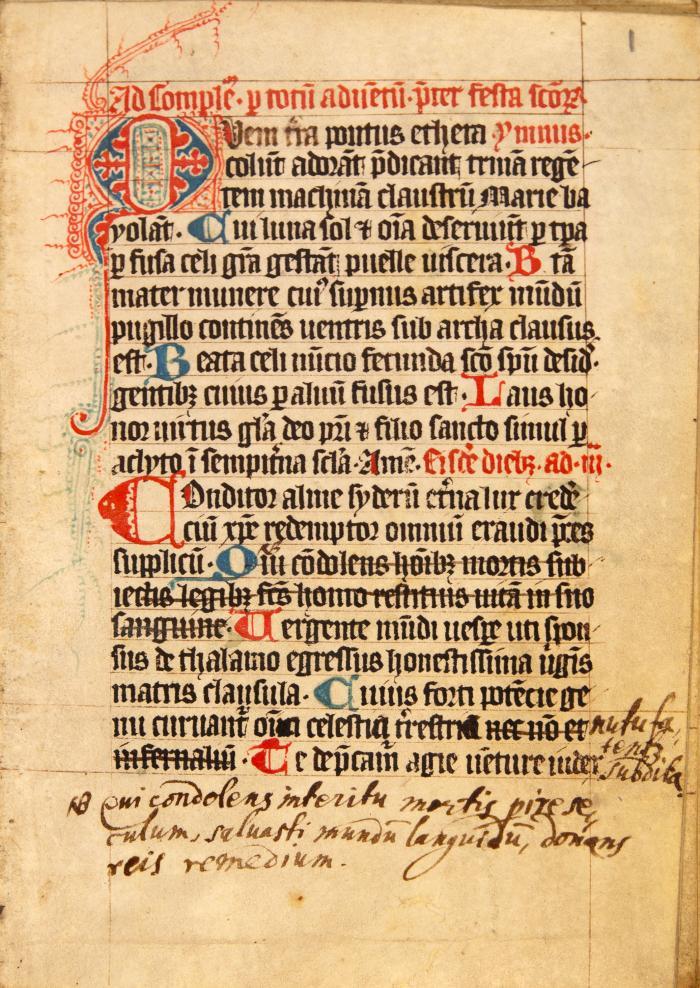 1
Ad Comple˜. p totũ aduẽtũ. p̃ter festa sc̃oꝝ.
Quem t̃ra pontus ethera Ymnus.
colũt adorãt p̃dicant trinã rege
tem machinã claustrũ Marie ba
yolãt. Cui luna sol ⁊ oĩa deseruiũt p tp̃a
ꝑfusa celi gr̃a gestãt puelle uiscera. B tã
mater munere cuiꝰ supnus artifex mũdũ
pugillo continẽs uentris sub archa clausus
est. Beata celi nũcio fecunda sc̃o sp̃u desid̾.
gentibꝫ cuius p aluũ fusus est. Laus ho
nor uirtus gl̃a deo pr̃i ⁊ filio sancto simul p
aclyto ĩ sempit̃na sc̃la. Amẽ. Eisdẽ diebꝫ. ad. iii.
Conditor alme syderũ et̃na lux crede
ciũ xp̃e redemptor omniũ exaudi p̃ces
supplicũ. Qui cõdolens hõibꝫ mortis sub
iectis legibꝫ fc̃s homo restituis uitã in suo
sanguine. Uergente mũdi uesꝑe uti spon
sus de thalamo egressus honestissima ugĩs
matris clausula. Cuius forti potẽcie ge
nu curuant̾ oĩa celestia t̃restria nec nõ et nutu fa
infernaliũ. Te dep̃cam̾ agie uẽture iudex tent̾ subdita
NB qui condolens interitu mortis pirese
culum, saluasti mundũ languidũ, donans
reis remedium.